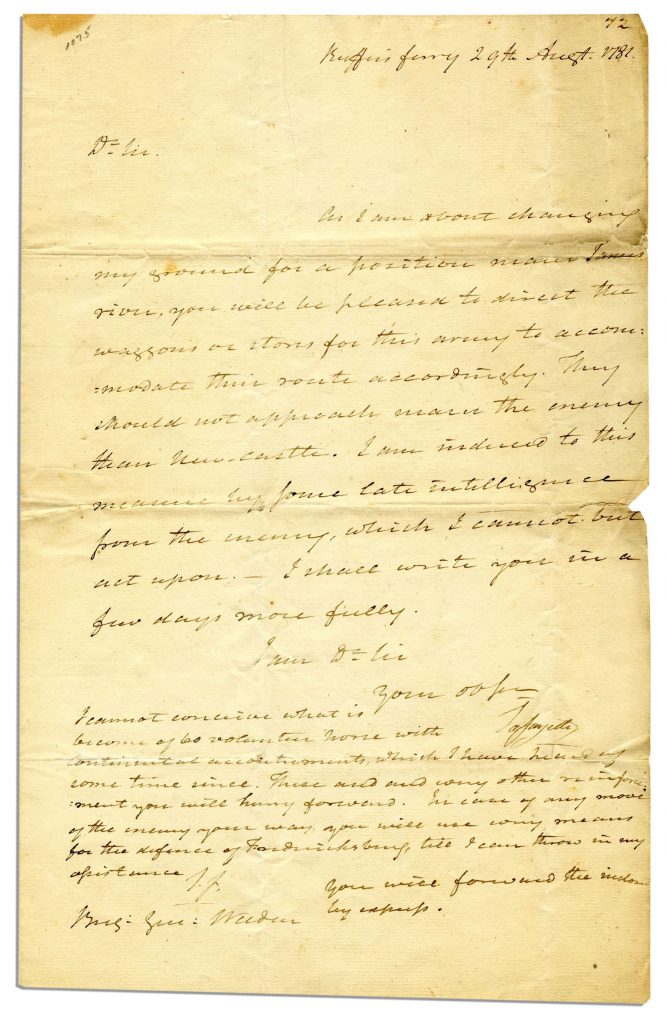 72
1075
Ruffins ferry 29th Augt. 1781.
Dr Sir.
As I am about changing
my ground for a position near James
river, you will be pleased to direct the
waggons or stores for this army to accom=
=modate their route accordingly. They
should not approach nearer the enemy
than New-castle. I am induced to this
measure by some late intelligence
from the enemy, which I cannot but
act upon. — I shall write you in a
few days more fully.
I am Dr Sir
Your obt
Lafayette
I cannot conceive what is
become of 60 volunteer horse with
continental accoutrements, which I have heard of
some time since. These and every other reinforce=
=ment you will hurry forward. In case of any move
of the enemy your way, you will use every means
for the defence of Fredricksburg, till I can throw in my
assistance
You will forward the inclosed
by express.
Brig: Gen: Weedon